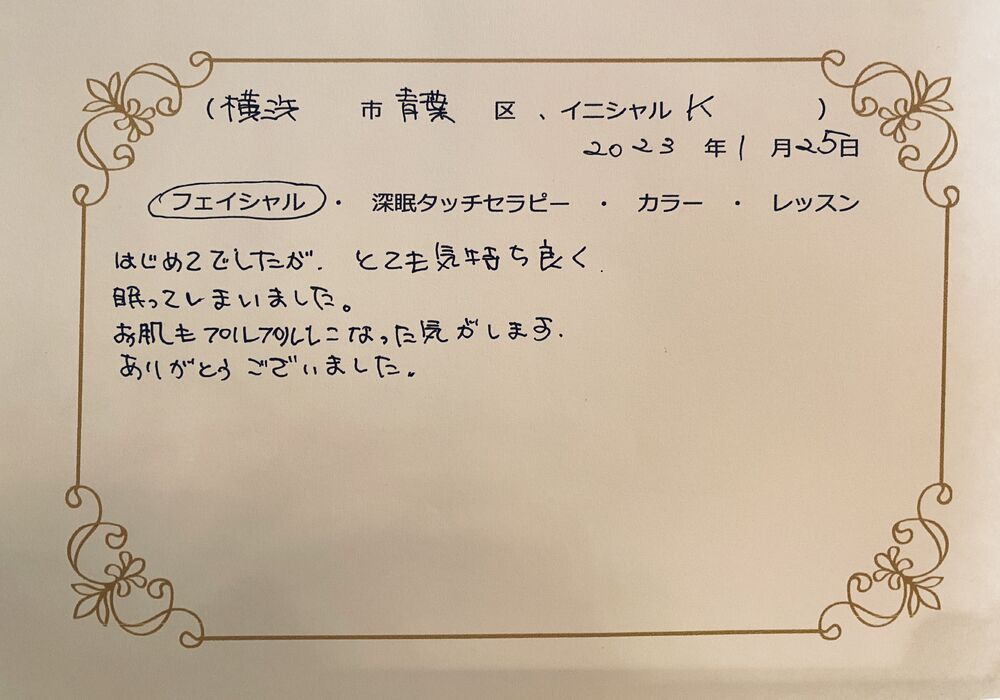 （横浜 市 青葉 区、イニシャル K ）
2023 年 1 月 25日
フェイシャル ・ 深眠タッチセラピー ・ カラー ・ レッスン
はじめてでしたが、とても気持ち良く
眠ってしまいました。
お肌もプルプルになった気がします.
ありがとうございました。